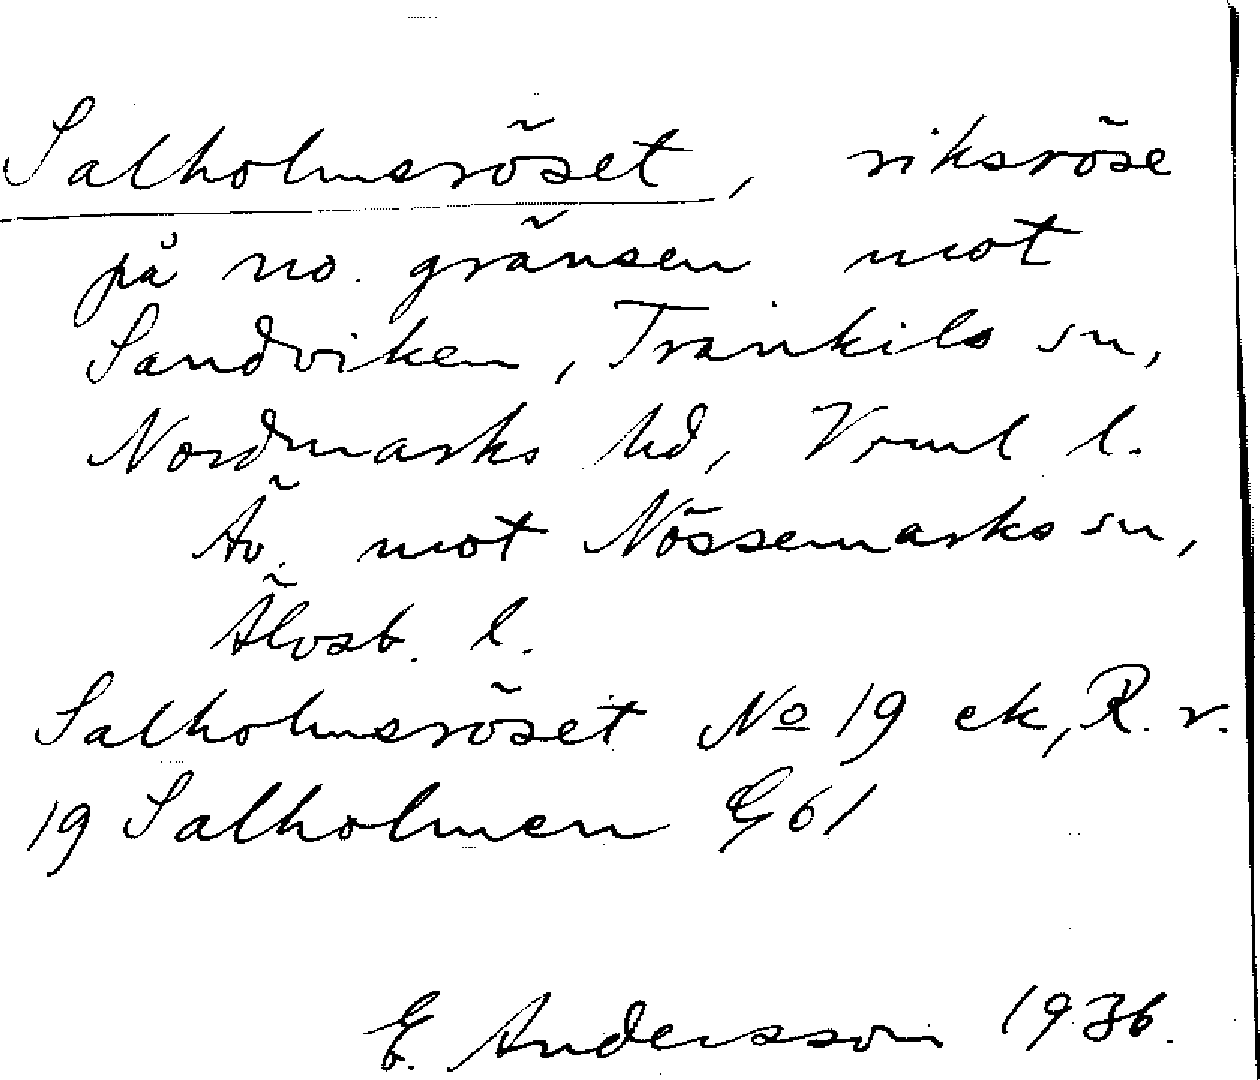 Salholmsröset, riksröse
på no. gränsen mot
Sandviken, Trankils sn,
Nordmarks hd, Vrml l.
Äv. mot Nössemarks sn,
Älvsb. l.
Salholmsröset No 19 ek, R. r.
19 Salholmen G 61
E. Andersson 1936.